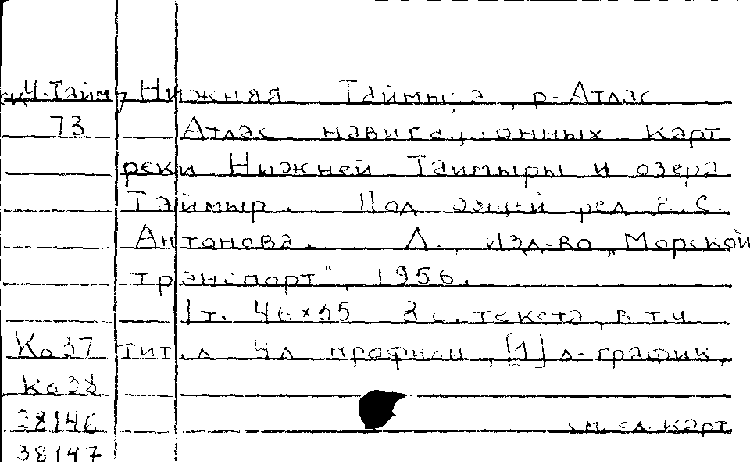 Нижняя Таймыра, р-Атлас
73 Атлас навигационных карт
реки Нижней Таймыры и озера
Таймыр. Под общей ред. С.
Антонова. Л., Изд-во "Морской
транспорт", 1956.
1т. 46×35 3 с. текста, в т.ч.
Ко37 тит.л 4л профили, [1] л-график,
Ко38
38146 см. сл. карт
38147